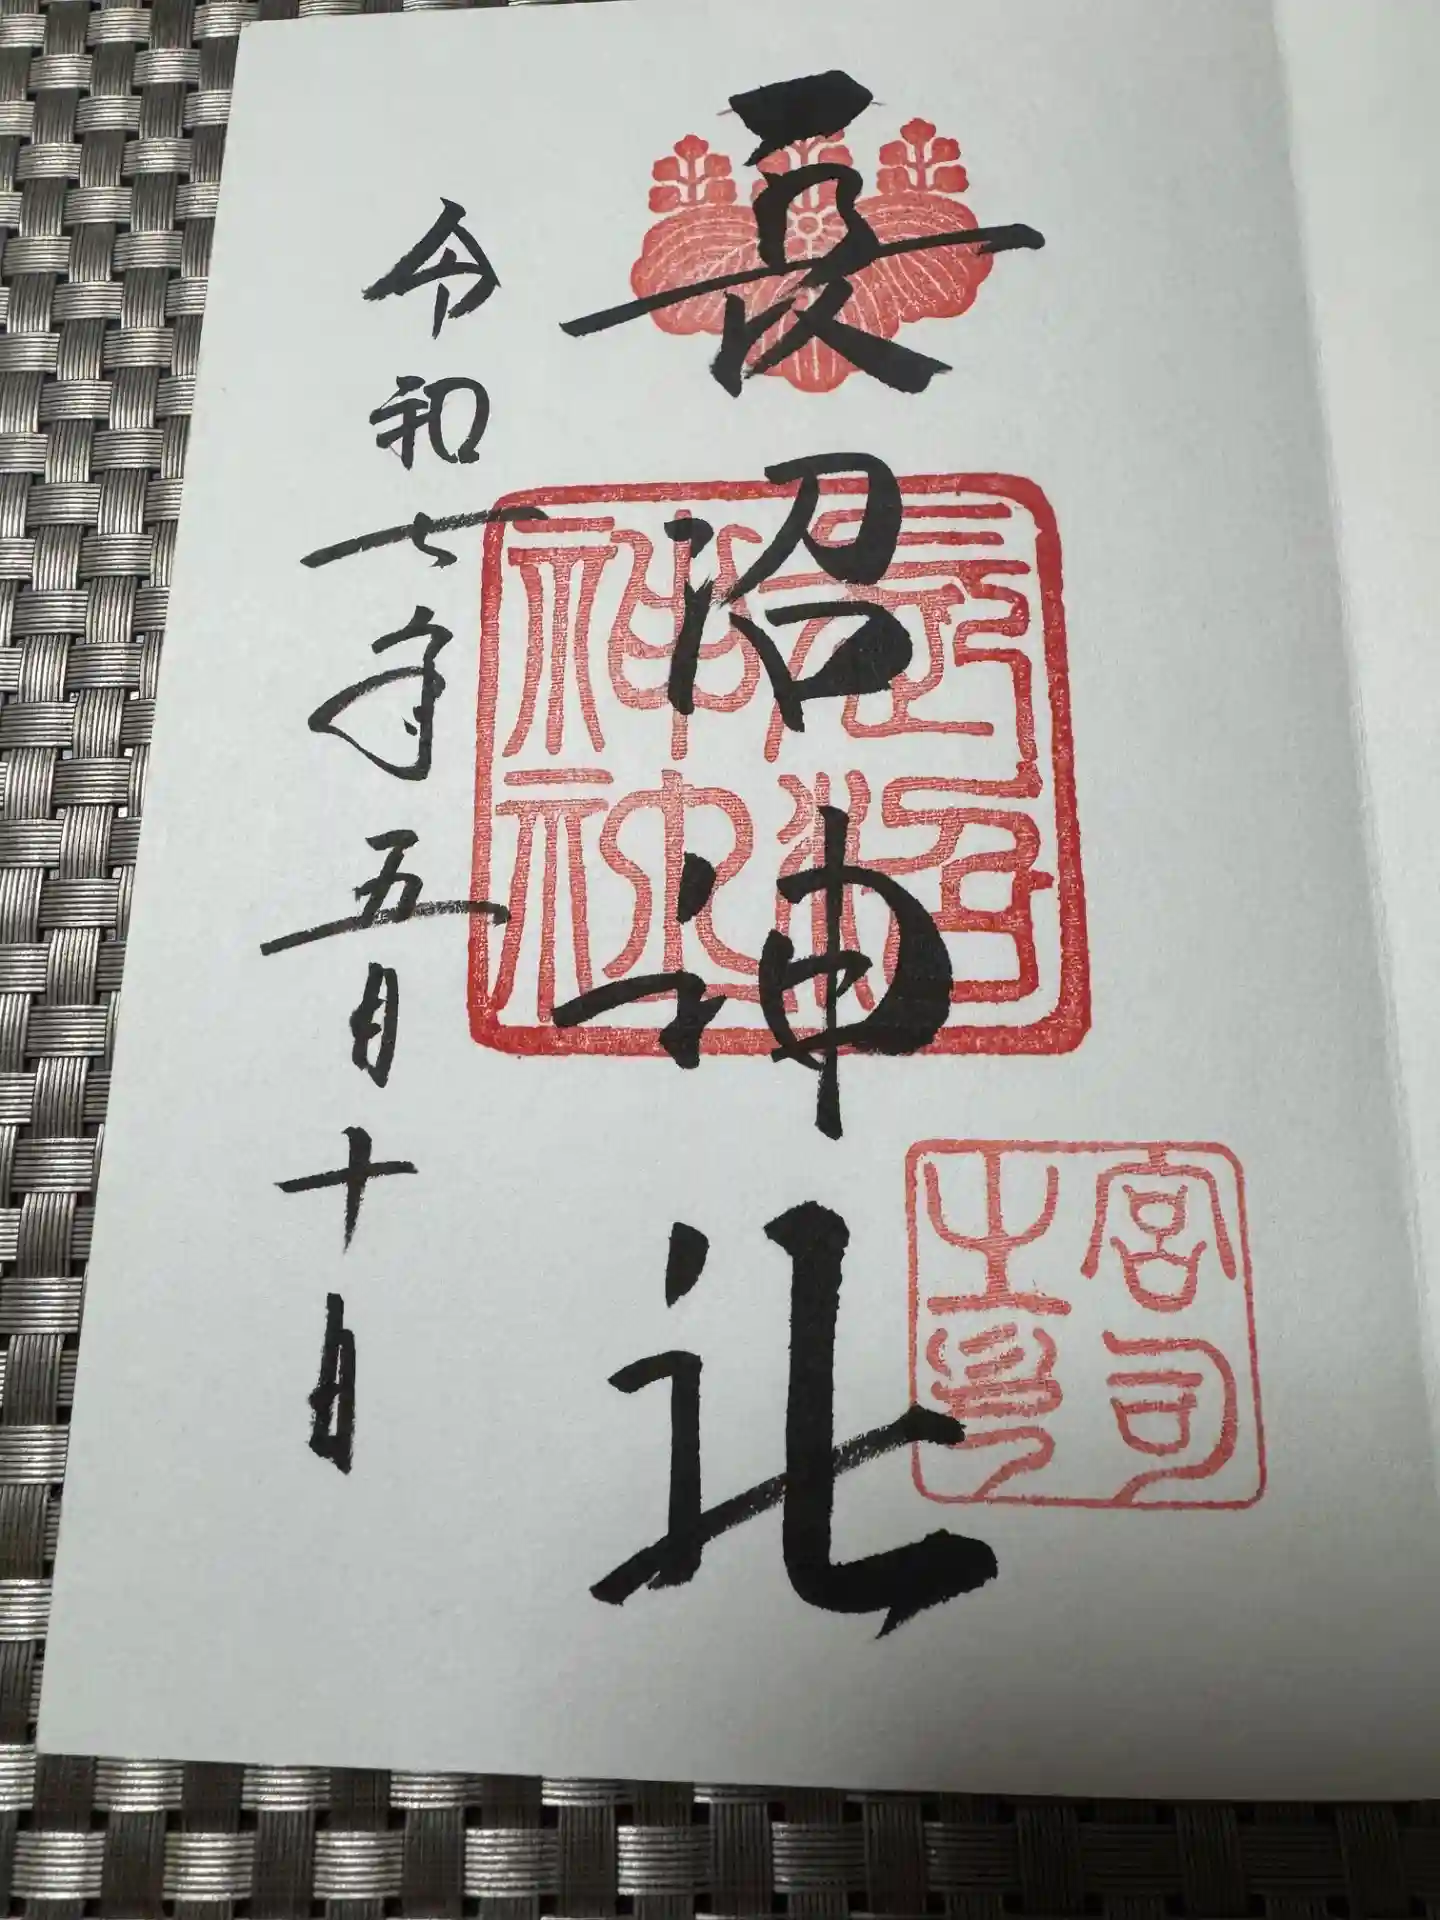 長沼神社
長沼
神社
宮司
之印
令和七年五月十日